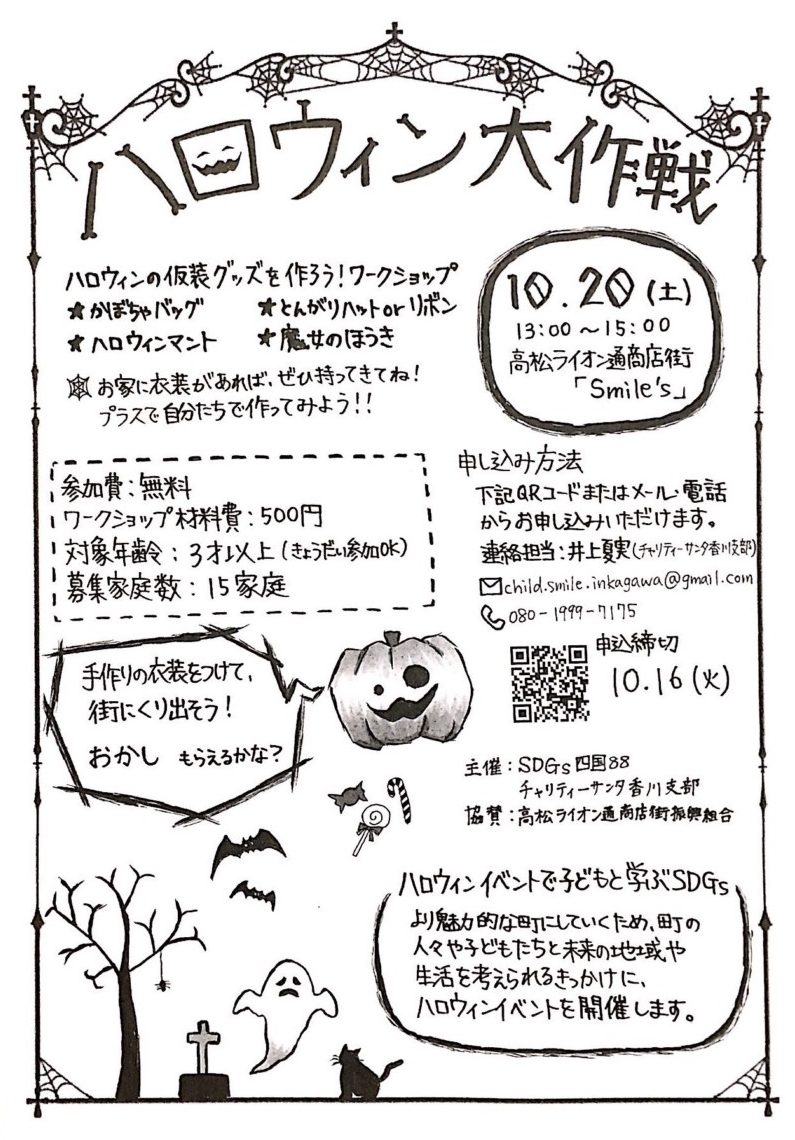 ハロウィン大作戦
ハロウィンの仮装グッズを作ろう!ワークショップ
★かぼちゃバッグ ★とんがりハットorリボン
★ハロウィンマント ★魔女のほうき
お家に衣装があれば、ぜひ持ってきてね!
プラスで自分たちで作ってみよう!!
10.20(土)
13:00~15:00
高松ライオン通商店街
「Smile's」
参加費:無料
ワークショップ材料費:500円
対象年齢:3才以上(きょうだい参加OK)
募集家庭数:15家庭
申し込み方法
下記QRコードまたはメール、電話
からお申し込みいただけます。
連絡担当:井上夏実(チャリティーサンタ香川支部)
child.smile.inkagawa@gmail.com
080-1999-7175
申込締切
10.16(火)
手作りの衣装をつけて、
街にくり出そう!
おかし もらえるかな?
主催:SDGs四国88
チャリティーサンタ香川支部
協賛:高松ライオン通商店街振興組合
ハロウィンイベントで子どもと学ぶSDGs
より魅力的な町にしていくため、町の
人々や子どもたちと未来の地域や
生活を考えられるきっかけに、
ハロウィンイベントを開催します。